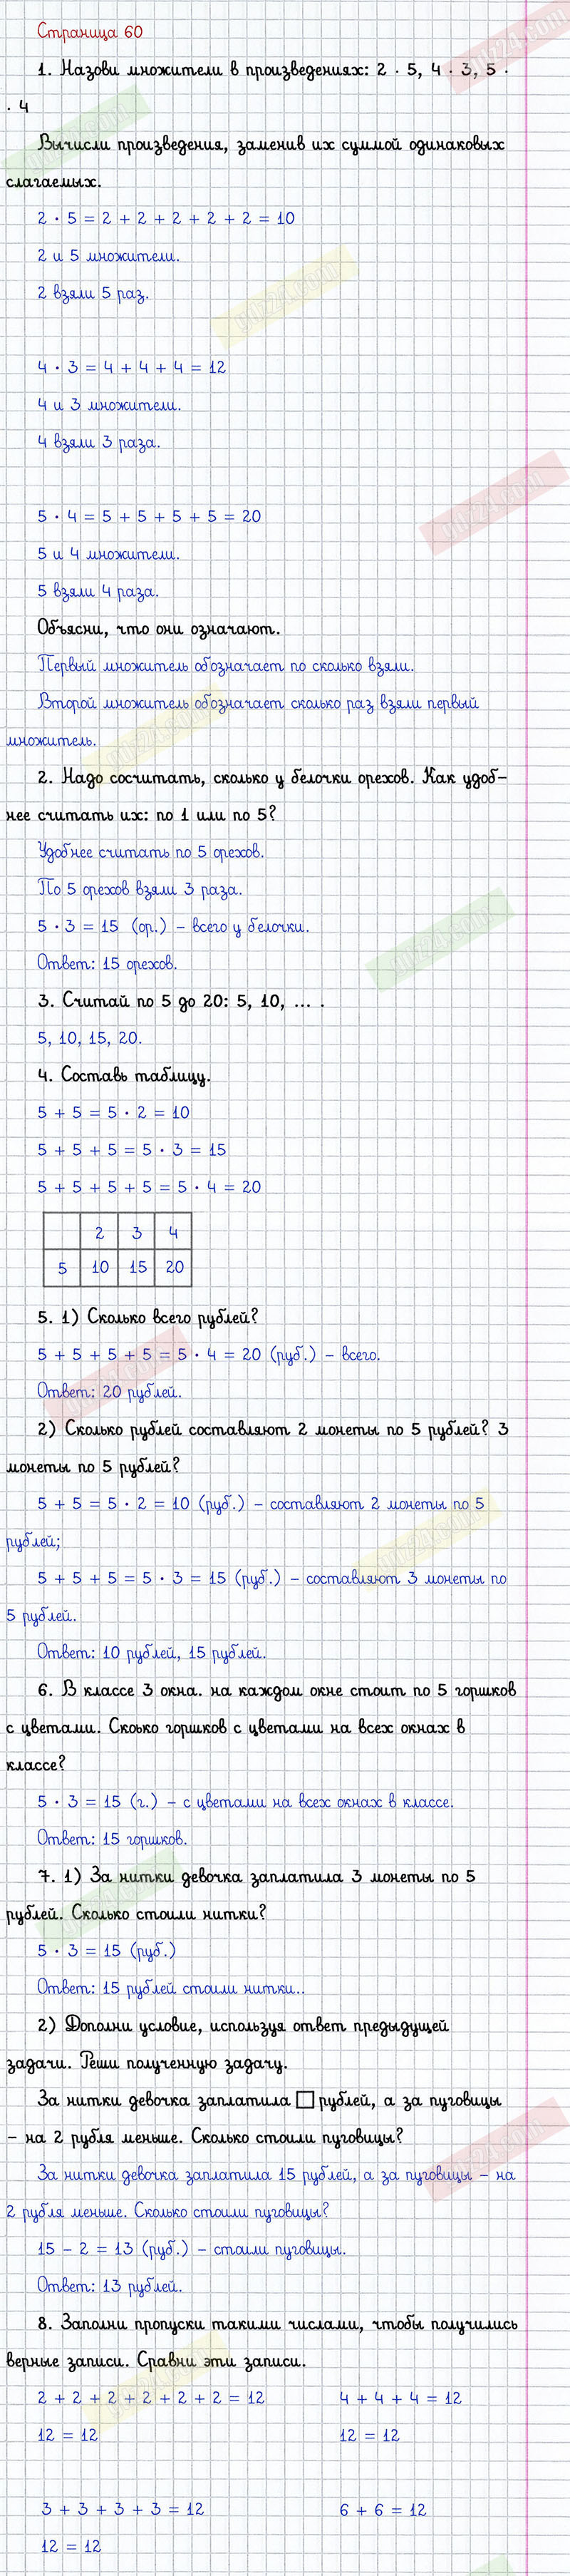 Страница 60
1. Назови множители в произведениях: 2 · 5, 4 · 3, 5 ·
· 4
Вычисли произведения, заменив их суммой одинаковых
слагаемых.
2 · 5 = 2 + 2 + 2 + 2 + 2 = 10
2 и 5 множители.
2 взяли 5 раз.
4 · 3 = 4 + 4 + 4 = 12
4 и 3 множители.
4 взяли 3 раза.
5 · 4 = 5 + 5 + 5 + 5 = 20
5 и 4 множители.
5 взяли 4 раза.
Объясни, что они означают.
Первый множитель обозначает по сколько взяли.
Второй множитель обозначает сколько раз взяли первый
множитель.
2. Надо сосчитать, сколько у белочки орехов. Как удоб-
нее считать их: по 1 или по 5?
Удобнее считать по 5 орехов.
По 5 орехов взяли 3 раза.
5 · 3 = 15 (ор.) – всего у белочки.
Ответ: 15 орехов.
3. Считай по 5 до 20: 5, 10, ... .
5, 10, 15, 20.
4. Составь таблицу.
5 + 5 = 5 · 2 = 10
5 + 5 + 5 = 5 · 3 = 15
5 + 5 + 5 + 5 = 5 · 4 = 20
2 3 4
5 10 15 20
5. 1) Сколько всего рублей?
5 + 5 + 5 + 5 = 5 · 4 = 20 (руб.) – всего.
Ответ: 20 рублей.
2) Сколько рублей составляют 2 монеты по 5 рублей? 3
монеты по 5 рублей?
5 + 5 = 5 · 2 = 10 (руб.) – составляют 2 монеты по 5
рублей;
5 + 5 + 5 = 5 · 3 = 15 (руб.) – составляют 3 монеты по
5 рублей.
Ответ: 10 рублей, 15 рублей.
6. В классе 3 окна. на каждом окне стоит по 5 горшков
с цветами. Скоько горшков с цветами на всех окнах в
классе?
5 · 3 = 15 (г.) – с цветами на всех окнах в классе.
Ответ: 15 горшков.
7. 1) За нитки девочка заплатила 3 монеты по 5
рублей. Сколько стоили нитки?
5 · 3 = 15 (руб.)
Ответ: 15 рублей стоили нитки..
2) Дополни условие, используя ответ предыдущей
задачи. Реши полученную задачу.
За нитки девочка заплатила □ рублей, а за пуговицы
– на 2 рубля меньше. Сколько стоили пуговицы?
За нитки девочка заплатила 15 рублей, а за пуговицы – на
2 рубля меньше. Сколько стоили пуговицы?
15 – 2 = 13 (руб.) – стоили пуговицы.
Ответ: 13 рублей.
8. Заполни пропуски такими числами, чтобы получились
верные записи. Сравни эти записи.
2 + 2 + 2 + 2 + 2 + 2 = 12 4 + 4 + 4 = 12
12 = 12 12 = 12
3 + 3 + 3 + 3 = 12 6 + 6 = 12
12 = 12